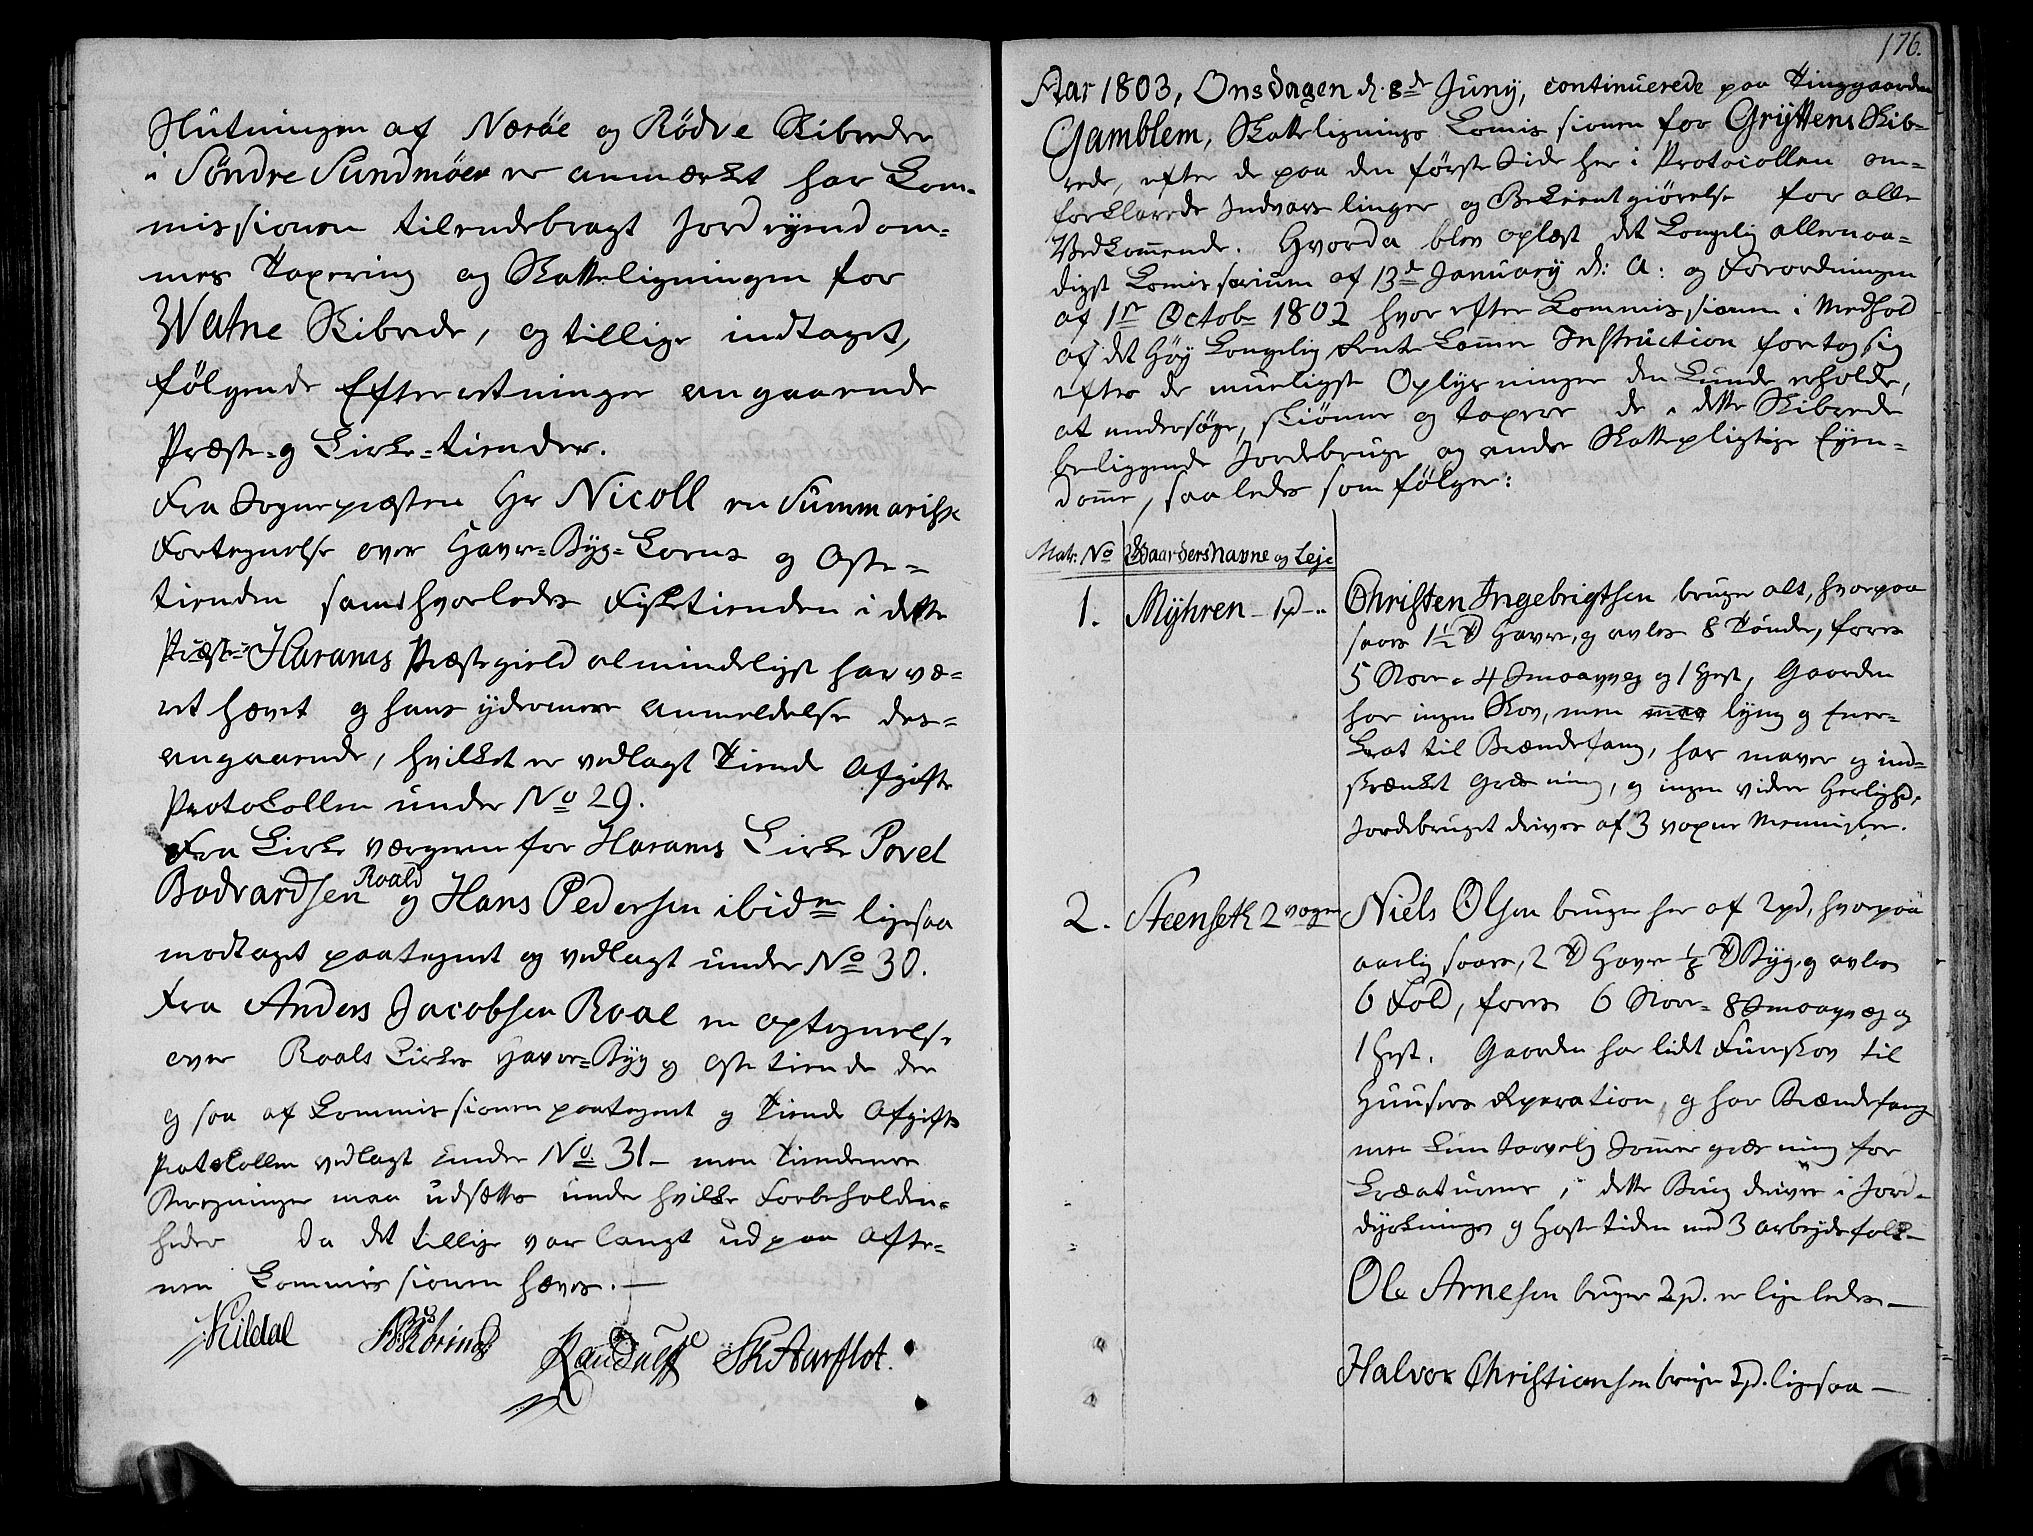 Slutningen af Nærøe og Rödve Skibreder
i Söndre Sundmöer er anmærket har Com-
missionen tilendebragt Jordeyendom-
mes Taxering og Skatteligningen for
Watne Skibrede, og tillige indtaget,
følgende Efterretninger angaaende
Præste- og Kirke-tiender.
Fra Sognepræsten Hr Nicoll en Summarisk
Fortegnelse over Havre- Byg- Korns og Oste-
tienden samt hvorledes Fisketienden i dette
Præste- Harams Præstegield almindeligst har væ-
ret hævet og hans ydermere Anmeldelse des-
angaaende, hvilket er vedlagt Tiende Afgifts
Protokollen under No 29.
Fra Kirke værgerne for Harams Kirke Povel
Bodvardsen Roald og Hans Pedersen ibidm ligesaa
modtaget paategnet og vedlagt under No 30.
Fra Anders Jacobsen Roal en optegnelse
over Roals Kirkes Havre- Byg og Oste tiende der
og saa af Kommissionen paategnet og Tiende Afgifts
Protokollen vedlagt under No. 31 - men Tiendernes
Beregninger maa udsættes under hvilke Forbeholden-
heder da det tillige var langt ud paa Afte-
nen Kommissionen hæves. —
Kildal Randulff SK Aarflot.
176.
Aar 1803, Onsdagen d. 8de Juny, continuerede paa Tinggaarden
Gamblem, Skattelignings Comissionen for Gryttens Skib-
rede, efter de paa den første Side her i Protocollen om-
forklarede Indvarslinger og Bekiendtgiørelse for alle
Vedkommende. Hvorda blev oplæst det Kongelig allernaa-
digst Comissorium af 13de January d: A: og Forordningen
af 1ste Octobr 1802 hvorefter Kommissionen i Medhold
af det Høy Kongelig Rente Kammer Instruction foretog sig
efter de mueligste Oplysninger den kunde erholde,
at undersøge, skiønne og taxere de i dette Skibrede
beliggende Jordebruge og andre Skattepligtige Eyen-
domme, saaledes som følger:
Matr. No Gaardersnavne og Leje
1. Myhren - 1pd - " Christen Ingebrigtsen bruger alt, hvorpaa
saaes 1½ Td Havre, og avles 8 Tønder, foers
5 Stor- 4 Smaaqvæg og 1 Hest, Gaarden
har ingen Skov, men lyng og Ener-
Krat til Brændefang, har maver og ind-
skrænket Græsning, og ingen videre Herlighed,
Jordebruget drives af 3 voxne Mennisker.
2. Steenseth 2 voger Niels Olsen bruger her af 2pd, hvorpaa
aarlig saaes, 2 Td Havre ⅛ Td Byg, og avles
6 Fold, foers 6 Stor- 8 Smaaqvæg og
1 Hest. Gaarden har lidt Furuskov til
Huusers Reparation, og har Brændefang
men kun taavelig Sommer græsning for
Kreaturerne, dette Brug drives i Jord-
dyrknings og Høstetiden med 3 arbeydsfolk -
Ole Arnesen bruger 2pd. er ligeledes —
Halvor Christiansen bruger 2pd. ligesaa —